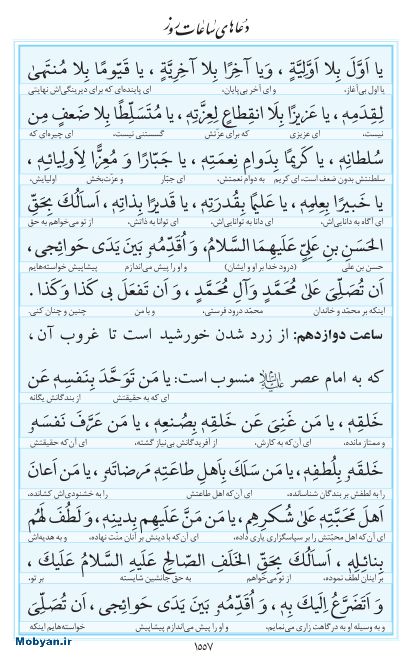 دعاهای ساعات روز
یا اَوَّلَ بِلا اَوَّلِیَّةٍ ، وَیا آخِرًا بِلا آخِرِیَّةٍ ، یا قَیّومًا بِلا مُنتَهیٰ
یا اول بی‌آغاز، و ای آخر بی‌پایان، ای پاینده‌ای که برای دیرینگی‌اش نهایتی
لِقِدَمِهٖ ، یا عَزیزًا بِلَا انقِطاعٍ لِعِزَّتِهٖ ، یا مُتَسَلِّطًا بِلا ضَعفٍ مِن
نیست، ای عزیزی که برای عزتش گسستنی نیست، ای چیره‌ای که
سُلطانِهٖ ، یا کَریمًا بِدَوامِ نِعمَتِهٖ ، یا جَبّارًا وَ مُعِزًّا لِاَولِیائِهٖ ،
سلطنتش بدون ضعف است، ای کریم به دوام نعمتش، ای جبّار و عزت‌بخش اولیایش،
یا خَبیرًا بِعِلمِهٖ ، یا عَلیمًا بِقُدرَتِهٖ ، یا قَدیرًا بِذاتِهٖ ، اَسأَلُكَ بِحَقِّ
ای آگاه به دانایی‌اش، ای دانا به توانایی‌اش، ای توانا به ذاتش، از تو می‌خواهم به حق
الحَسَنِ بنِ عَلِیٍّ عَلَیهِمَا السَّلامُ، وَ اُقَدِّمُهٗ بَینَ یَدَی حَوائِجی،
حسن بن علی (درود خدا بر او و ایشان) و او را پیش می‌اندازم پیشاپیش خواسته‌هایم
اَن تُصَلِّیَ عَلیٰ مُحَمَّدٍ وَآلِ مُحَمَّدٍ ، وَ اَن تَفعَلَ بی کَذا وَکَذا .
اینکه بر محمّد و خاندان محمّد درود فرستی، و با من چنین و چنان کنی.
ساعت دوازدهم: از زرد شدن خورشید است تا غروب آن ،
که به امام عصر منسوب است: یا مَن تَوَحَّدَ بِنَفسِهٖ عَن
ای که به حقیقتش از بندگانش یگانه
خَلقِهٖ ، یا مَن غَنِیَ عَن خَلقِهٖ بِصُنعِهٖ ، یا مَن عَرَّفَ نَفسَهٗ
و ممتاز مانده، ای آن‌که به کارش، از آفریدگانش بی‌نیاز گشته، ای آن‌که حقیقتش
خَلقَهٗ بِلُطفِهٖ، یا مَن سَلَكَ بِاَهلِ طاعَتِهٖ مَرضاتَهٗ ، یا مَن اَعانَ
را به لطفش بر بندگان شناسانده، ای آن‌که اهل طاعتش را به خشنودی‌اش کشانده،
اَهلَ مَحَبَّتِهٖ عَلیٰ شُکرِهٖ، یا مَن مَنَّ عَلَیهِم بِدینِهٖ، وَ لَطُفَ لَهُم
ای آن‌که اهل محبّتش را بر سپاسگزاری یاری داده، ای آن‌که با دینش بر آنان منت نهاده، و به هدیه‌اش
بِنائِلِهٖ ، اَسأَلُكَ بِحَقِّ الخَلَفِ الصّالِحِ عَلَیهِ السَّلامُ عَلَیكَ ،
بر اینان لطف نموده، از تو می‌خواهم به حق جانشین شایسته بر تو،
وَ اَتَضَرَّعُ اِلَیكَ بِهٖ ، وَ اُقَدِّمُهٗ بَینَ یَدَی حَوائِجی ، اَن تُصَلِّیَ
و به وسیله او به درگاهت زاری می‌نمایم، و او را پیش می‌اندازم پیشاپیش خواسته‌هایم اینکه
۱۵۵۷
Mobyan.ir